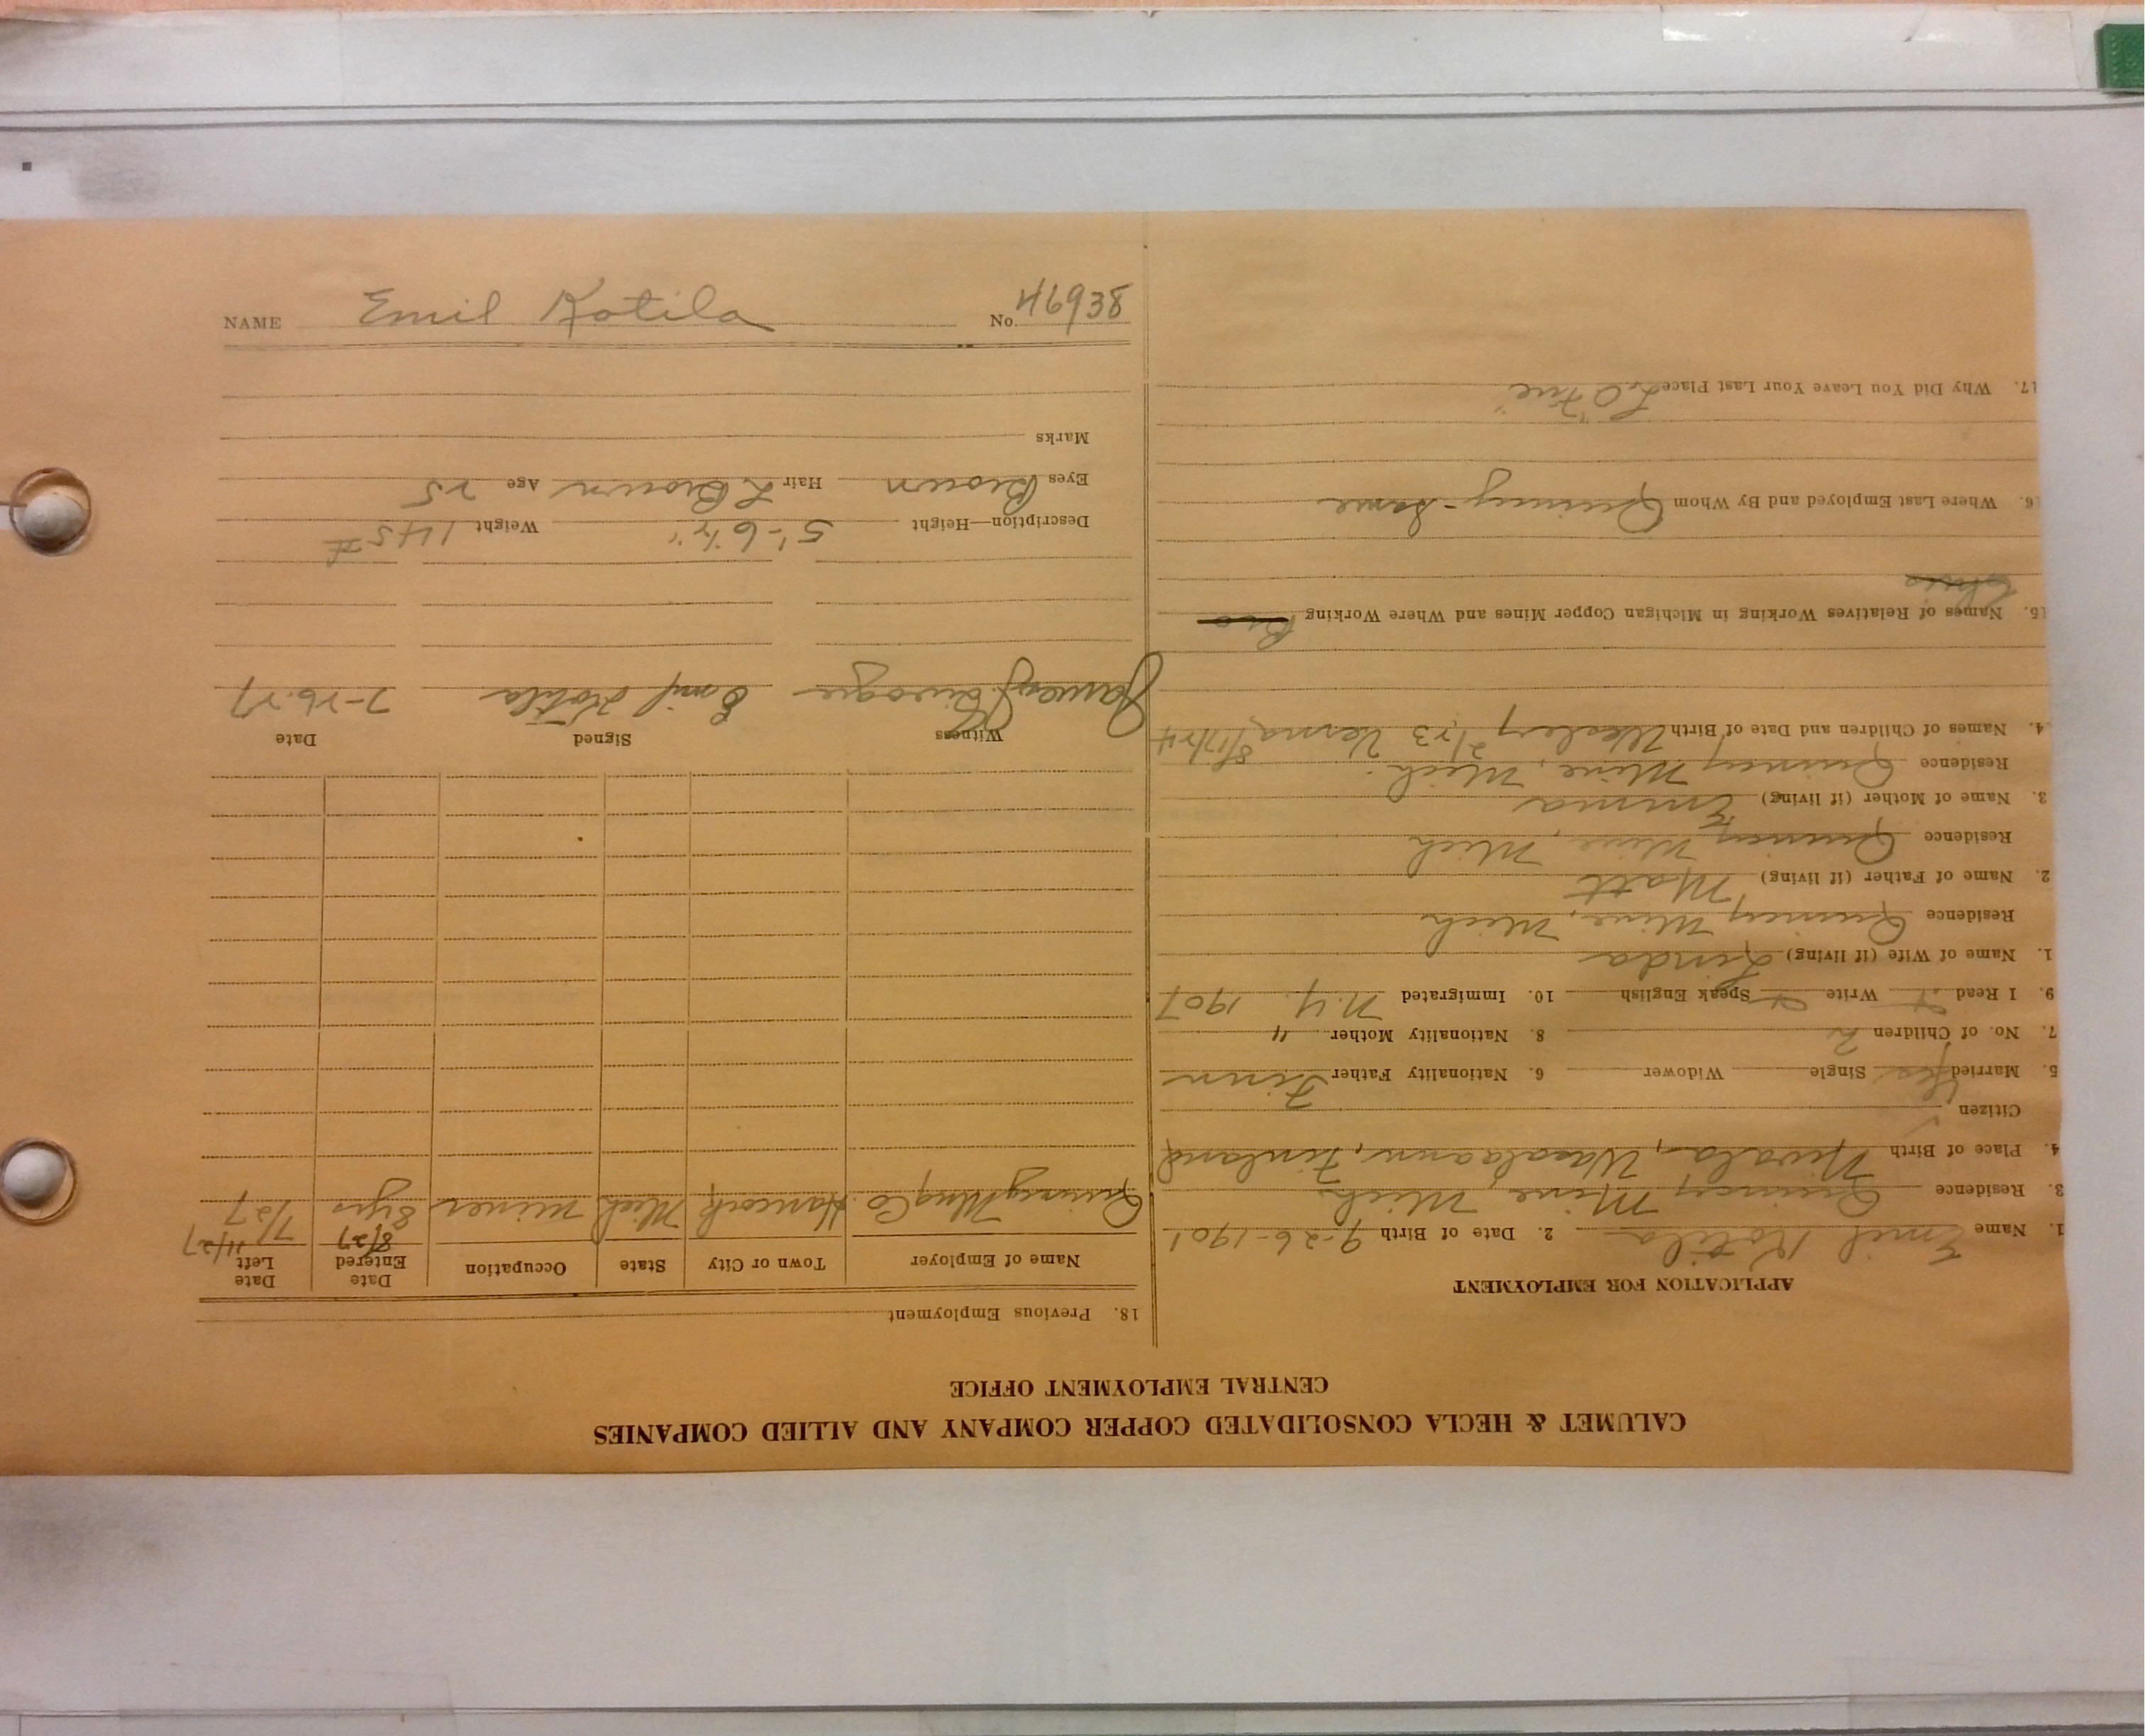 CALUMET & HECLA CONSOLIDATED COPPER COMPANY AND ALLIED COMPANIES
CENTRAL EMPLOYMENT OFFICE
APPLICATION FOR EMPLOYMENT
1. Name Emil Kotila 2. Date of Birth 9-26-1901
3. Residence Quincy Mine, Mich
4. Place of Birth Nivala, Finland
Citizen
5. Married Yes Single Widower 6. Nationality Father Finn
7. No. of Children 2 8. Nationality Mother "
9. I Read Write Speak English 10. Immigrated N.Y. 1907
1. Name of Wife (if living) Linda
Residence Quincy Mine, Mich
2. Name of Father (if living) Matt
Residence Quincy Mine, Mich
3. Name of Mother (if living) Emma
Residence Quincy Mine, Mich.
4. Names of Children and Date of Birth Wesley 2/23 Verna 8/17/24
15. Names of Relatives Working in Michigan Copper Mines and Where Working
6. Where Last Employed and By Whom Quincy - Same
17. Why Did You Leave Your Last Place L.O "Fire"
18. Previous Employment
Name of Employer Town or City State Occupation Date Entered Date Left
8/27 11/27
Quincy Mng Co. Hancock Mich miner 8 yrs 7/27
Witness Signed Date
James Emil Kotila 7-26-27
Description—Height 5'-6½" Weight 145 #
Eyes Brown Hair L Brown Age 25
Marks
NAME Emil Kotila No. 46938